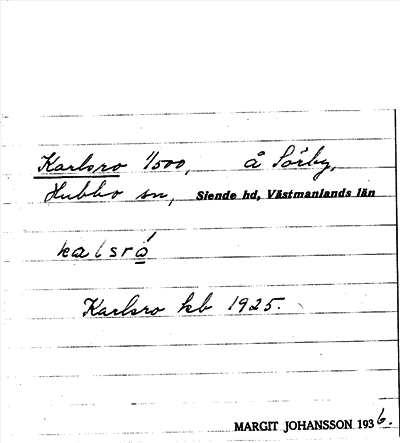 Karlsro 1/500, å Sörby,
Hubbo sn, Siende hd, Västmanlands län
kalsró
Karlsro kb 1925.
MARGIT JOHANSSON 1936.